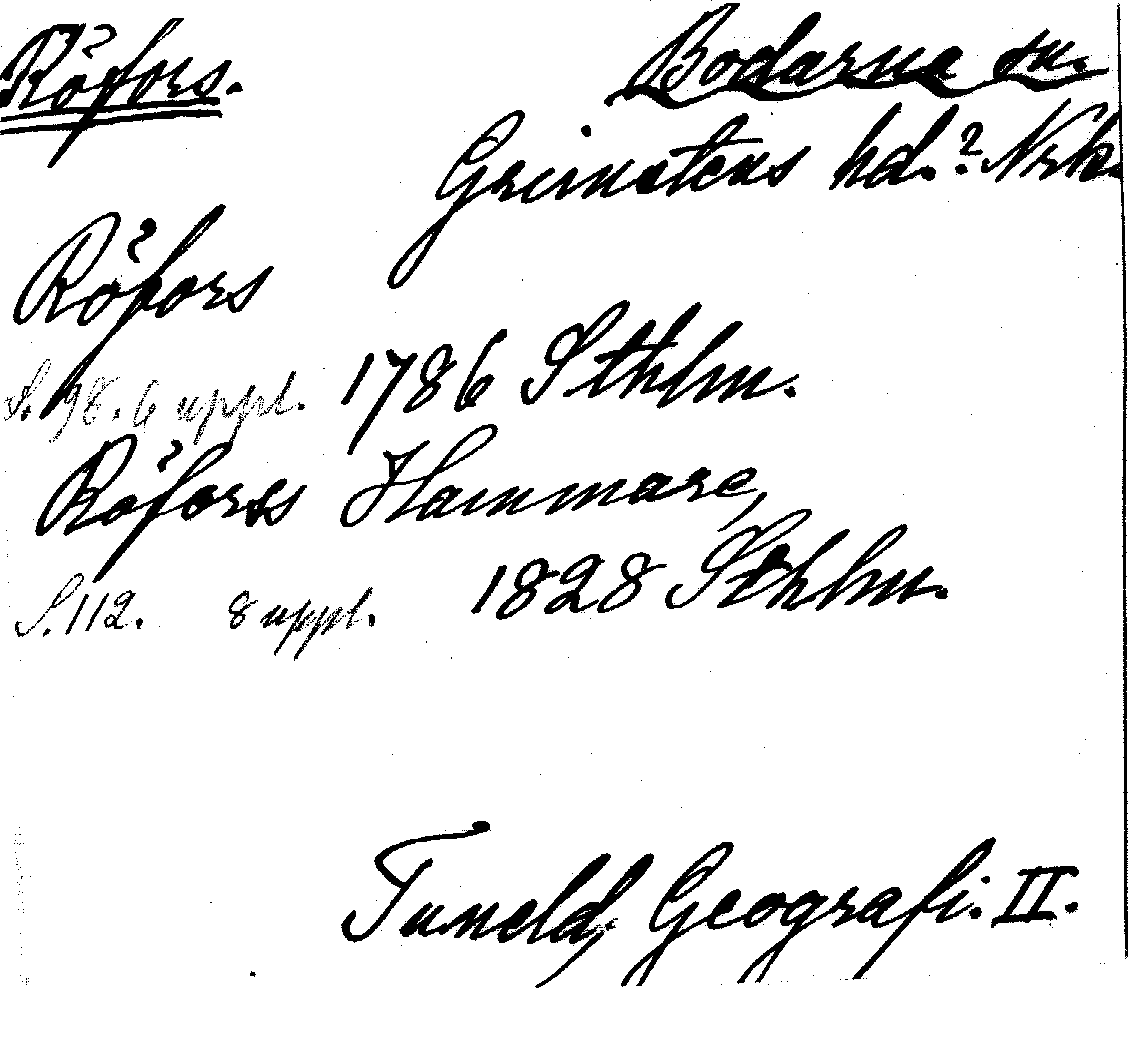 Röfors. Bodarna sn.
Grimstens hd.? Nrk.
Röfors
S. 98. 6 uppl. 1786 Sthlm.
Röforss Hammare,
S. 112. 8 uppl. 1828 Sthlm.
Tuneld, Geografi. II.